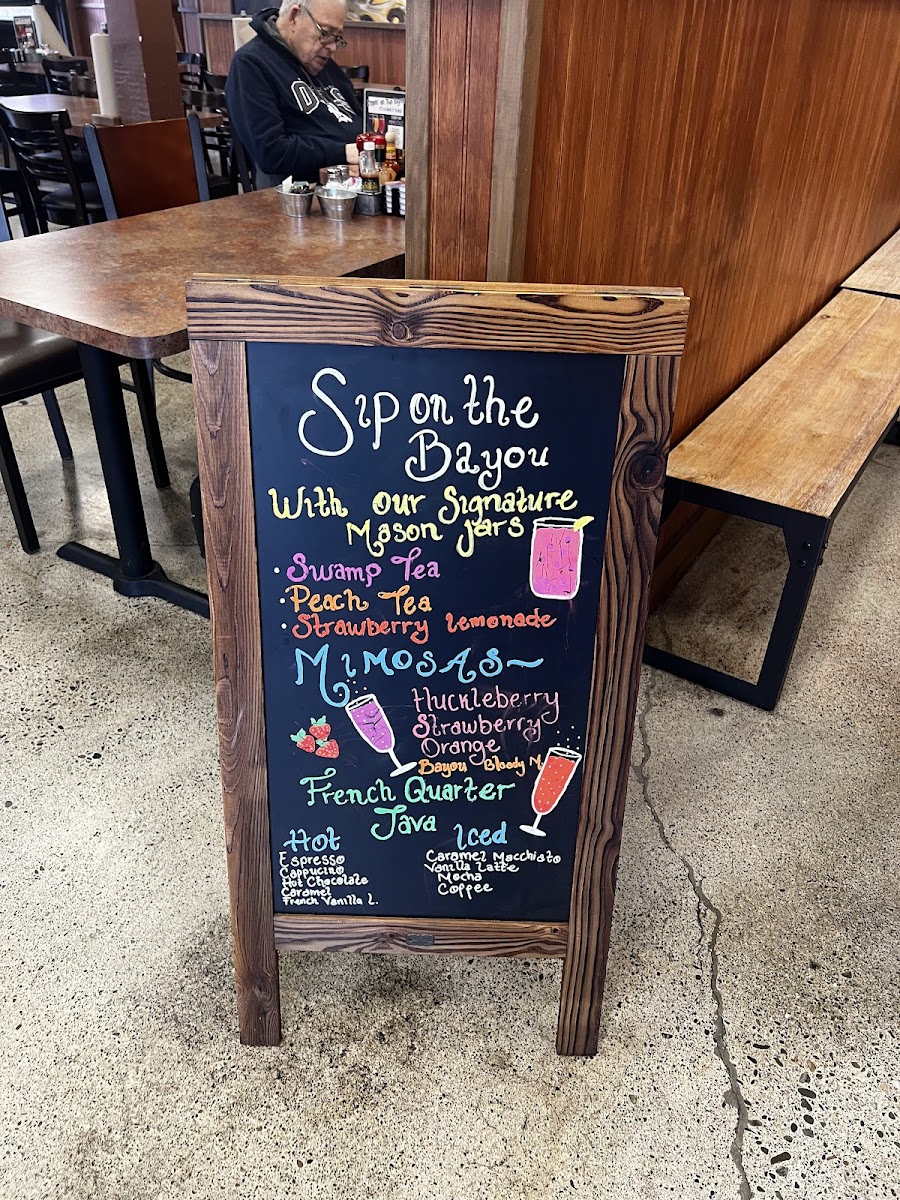 Sip on the
Bayou
With our Signature
Mason Jars
• Swamp Tea
• Peach Tea
• Strawberry Lemonade
MIMOSAS~
Huckleberry
Strawberry
Orange
Bayou Bloody M.
French Quarter
Java
Hot
Espresso
Cappucino
Hot Chocolate
Caramel
French Vanilla L.
Iced
Caramel Macchiato
Vanilla Latte
Mocha
Coffee